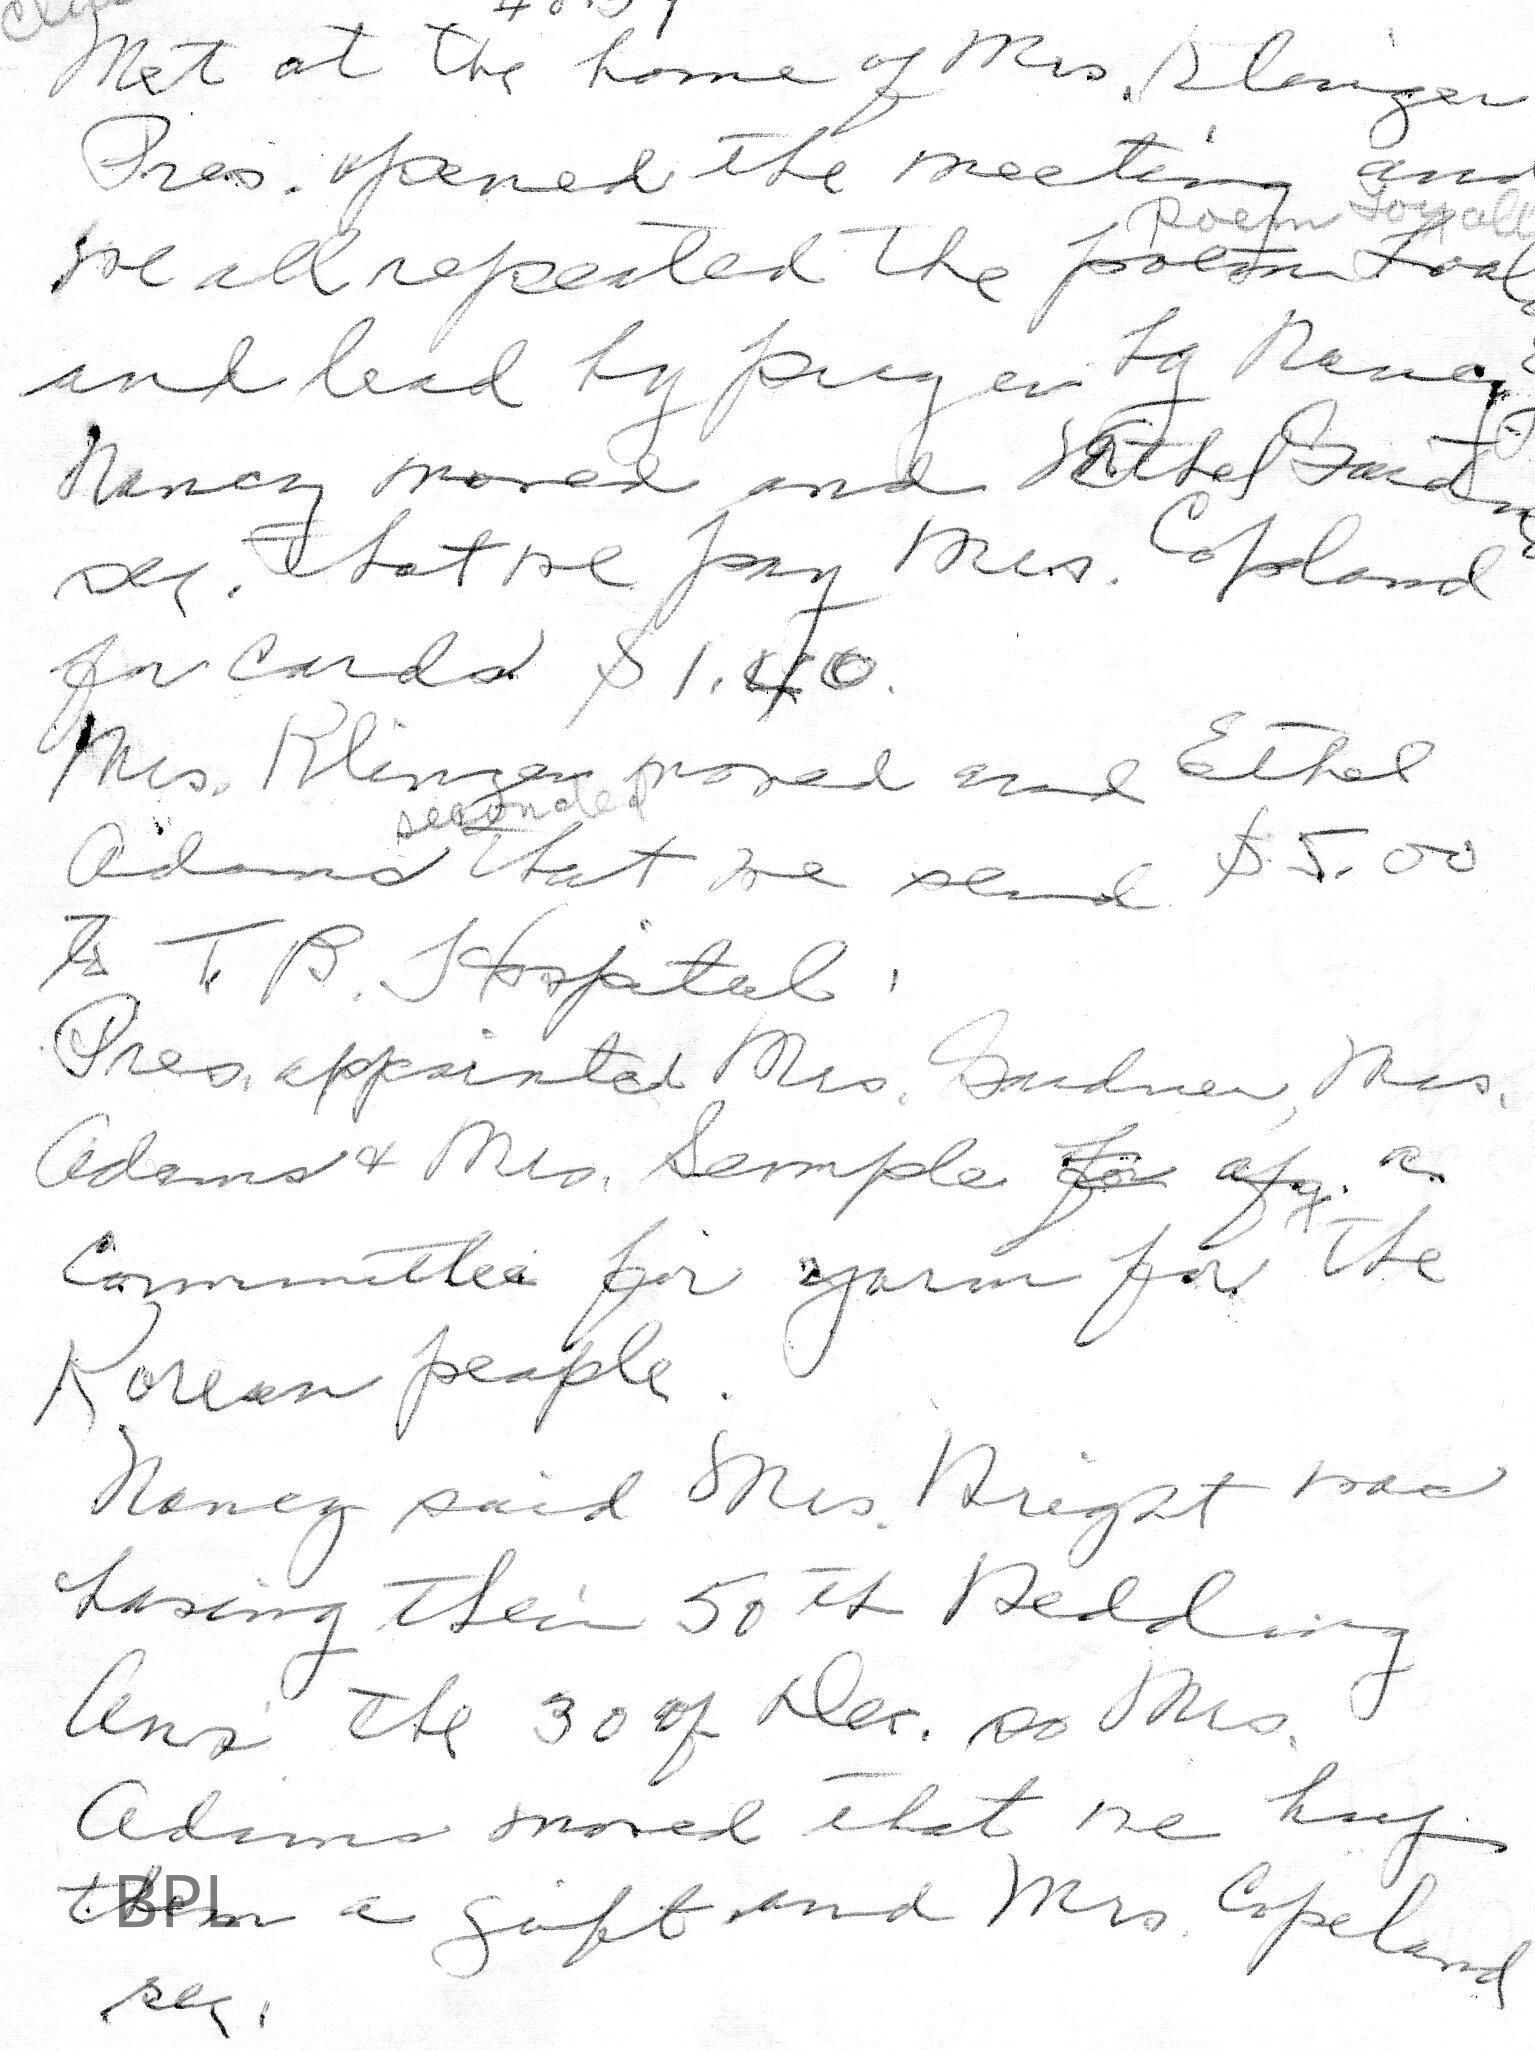 Met at the home of Mrs. Klinger
Pres. opened the meeting and
poem
we all repeated the poem
and lead by prayer by Nancy
Nancy moved and Ethel
sec. that we pay Mrs. Copland
for cards $1.40.
Mrs. Klinger moved and Ethel
seconded
Adams that we send $5.00
to T.B. Hospital.
Pres. appointed Mrs. Gardner, Mrs.
Adams & Mrs. Semple for a
Committee for yarn for the
Korean people.
Nancy said Mrs. Wright was
having their 50th Wedding
the 30 of Dec. so Mrs.
Adams moved that we buy
them a gift and Mrs Copeland
sec.
BPL